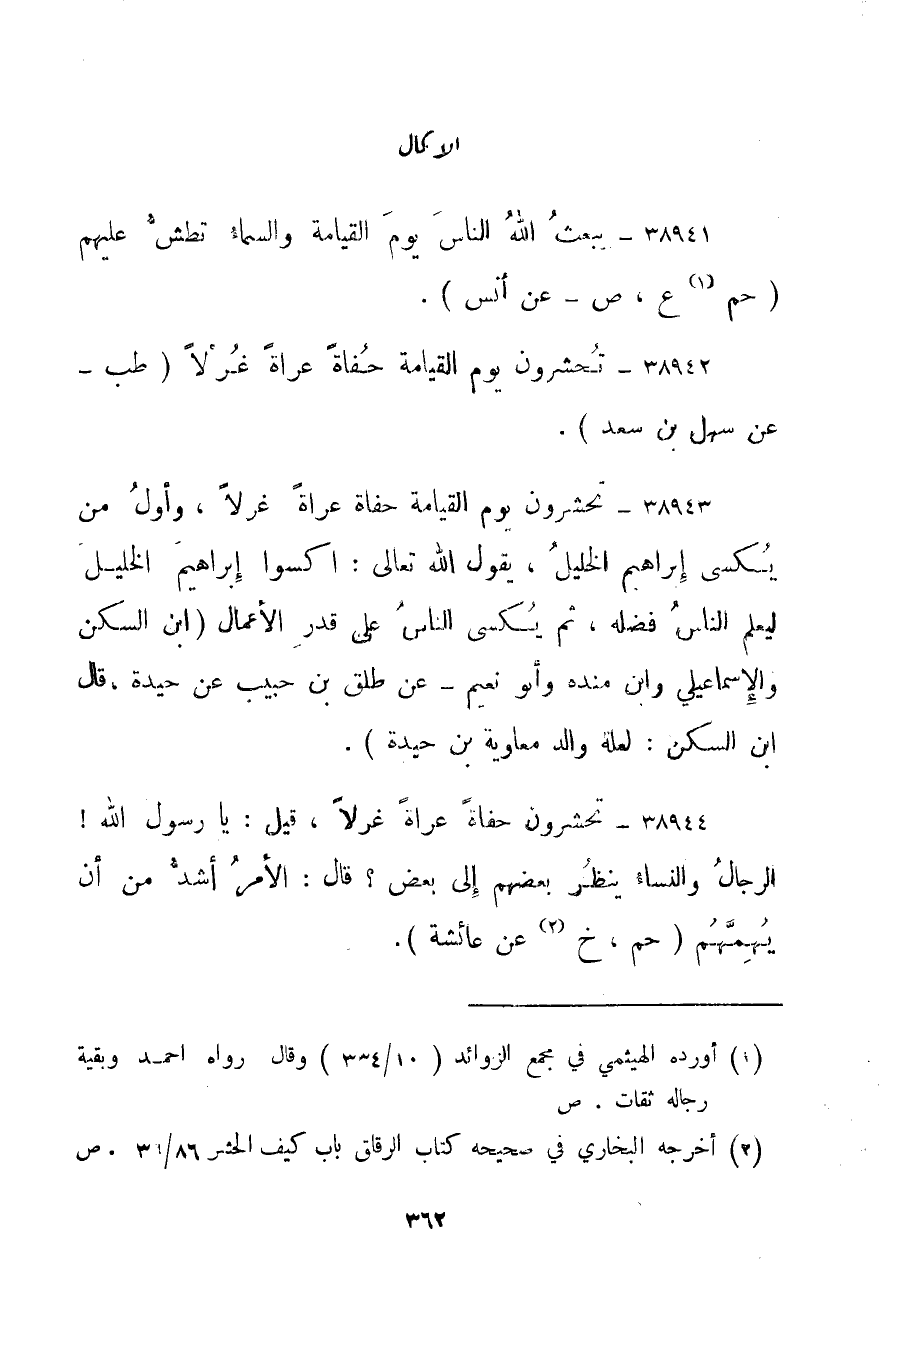 الاكمال
٣٨٩٤١ – يبعثُ اللهُ الناسَ يومَ القيامة والسماءُ تطشُّ عليهم
( حم (١) ع ، ص – عن أنس ) .
٣٨٩٤٢ – تُحشرون يوم القيامة حُفاةً عراةً غُرْلاً ( طب –
عن سهل بن سعد ) .
٣٨٩٤٣ – تحشرون يوم القيامة حفاة عراةً غرلاً ، وأولُ من
يُكسى إبراهيم الخليلُ ، يقول الله تعالى : اكسوا إبراهيمَ الخليلَ
ليعلم الناسُ فضله ، ثم يُكسى الناسُ على قدرِ الأعمال (ابن السكن
والإسماعيلي وابن منده وأبو نعيم – عن طلق بن حبيب عن حيدة ، قال
ابن السكن : لعله والد معاوية بن حيدة ) .
٣٨٩٤٤ – تحشرون حفاةً عراةً غرلاً ، قيل : يا رسول الله !
الرجالُ والنساءُ ينظُر بعضهم إلى بعض ؟ قال : الأمرُ أشدُّ من أن
يُهِمَّهُم ( حم ، خ (٢) عن عائشة ).
(١) أورده الهيثمي في مجمع الزوائد ( ١٠/٣٣٤ ) وقال رواه احمد وبقية
رجاله ثقات . ص
(٢) أخرجه البخاري في صحيحه كتاب الرقاق باب كيف الحشر ٨٦/ . ص
٣٦٢